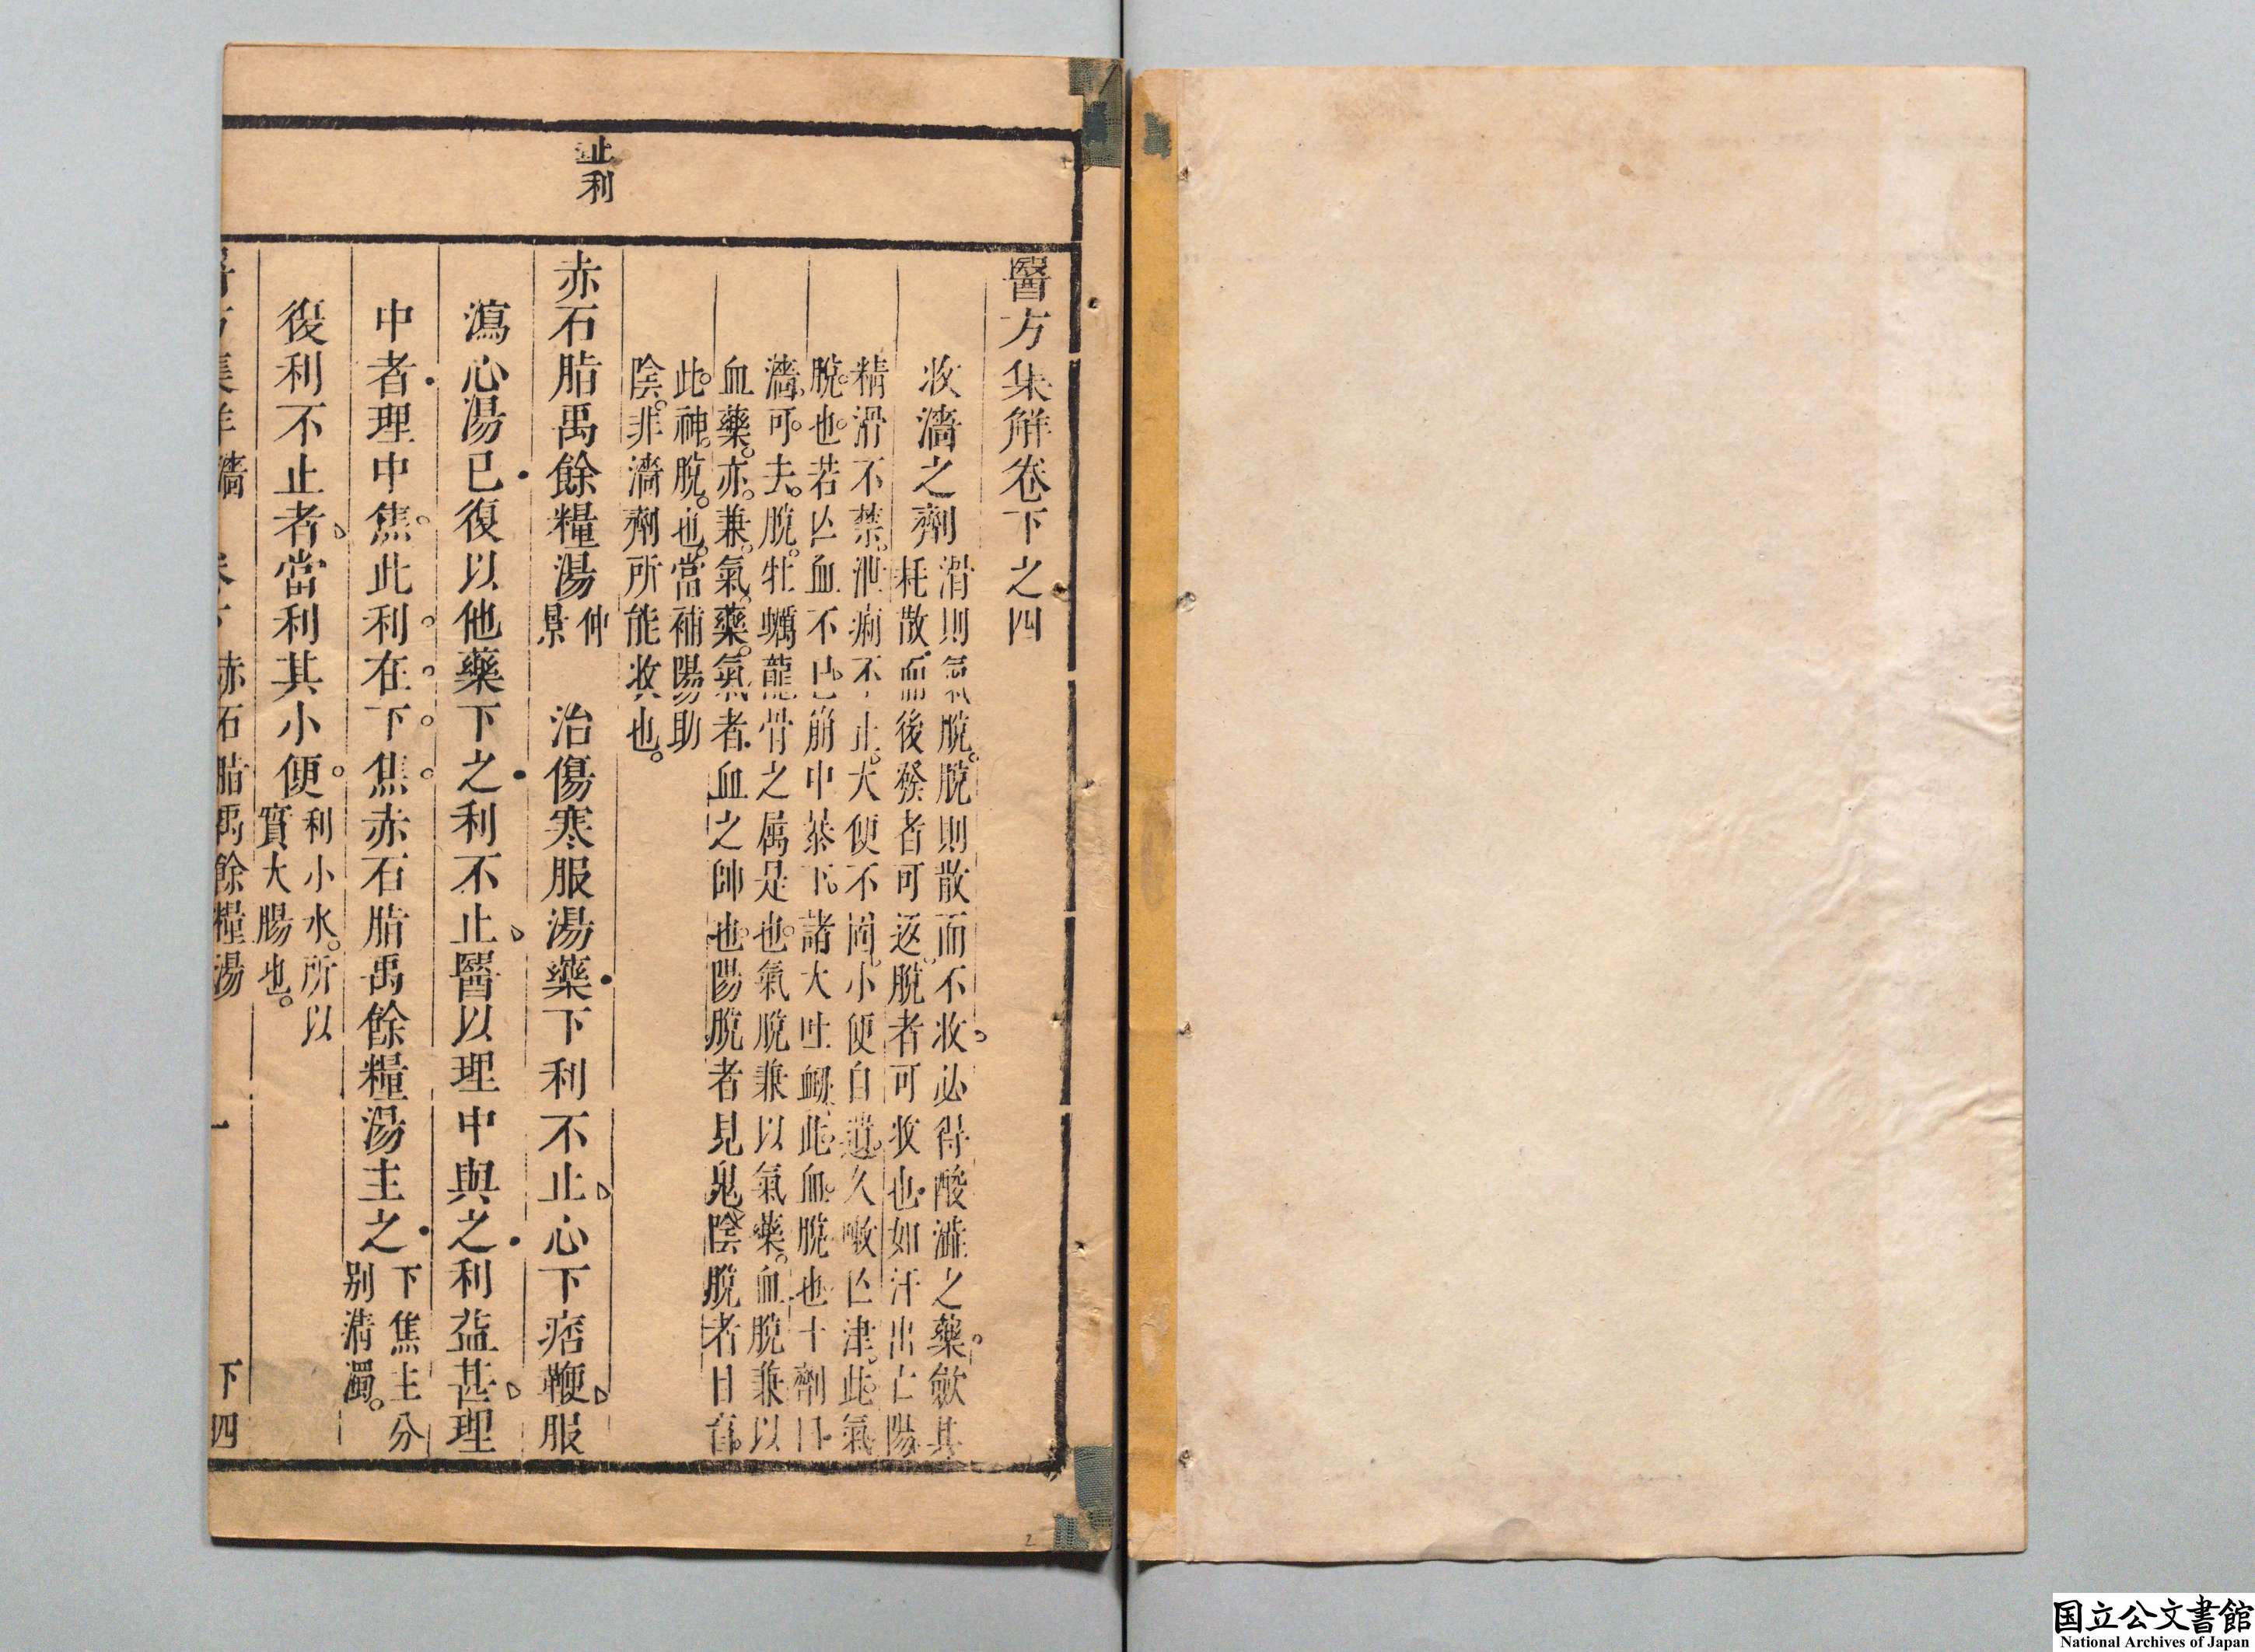 止利
醫方集解卷下之四
收濇之劑
滑則氣脫。脫則散而不收。必得酸濇之藥。斂其
耗散。而後發者可返。脫者可收也。如汗出亡陽
精滑不禁。泄痢不止。大便不固。小便自遺。久嗽亾津。此氣
脫也。若亾血不已。崩中暴下。諸大吐衂。此血脫也。十劑曰。
濇可去脫。牡蠣龍骨之属是也。氣脫兼以氣藥。血脫兼以
血藥。亦兼氣藥。氣者血之帥也。陽脫者見鬼。陰脫者目盲。
此神脫也。當補陽助
陰。非濇劑所能收也。
赤石脂禹餘糧湯
仲
景
治傷寒服湯藥下利不止心下痞鞕服
瀉心湯已復以他藥下之利不止醫以理中與之利益甚理
中者理中焦此利在下焦赤石脂禹餘糧湯主之
下焦主分
别清濁。
復利不止者當利其小便
利小水。所以
實大腸也。
濇
赤石脂禹餘糧湯
一
下四
国立公文書館
National Archives of Japan
2